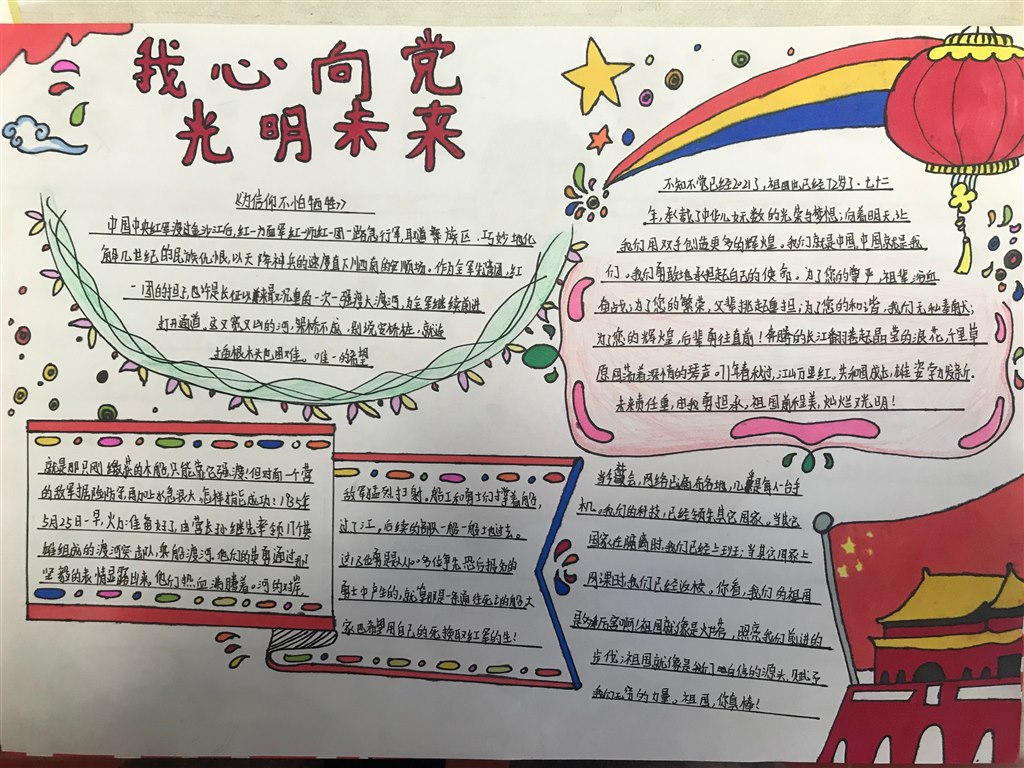 我心向党
光明未来
《为信仰不怕牺牲》
中国中央红军渡过金沙江后,红一方面军红一师红一团一路急行军,取道彝族区,巧妙地化
解几世纪的民族仇恨,以天降神兵的速度直下川西南的安顺场。作为全军先遣团,红
一团的担子,也许是长征以来最沉重的一次一强渡大渡河,为全军继续前进
打开通道。这又宽又山的河,架桥不成,别说安桥桩,就连
插根木头也困难。唯一的希望
就是那只刚缴获的木船,只能靠它强渡!但对面一个营
的敌军据险防守,再加上水急浪大,怎样才能成功?1935年
5月25日一早,火力准备好了,由营长孙继先率领17个勇
士组成的渡河突击队,乘船渡河。他们的英勇通过那
坚毅的表情显露出来,他们热血沸腾着。河的对岸,
敌军猛烈扫射。船工和勇士们撑着船,
过了江,后续的部队一船一船地过去。
这17位勇士是数人。多位争先恐后报名的
勇士中产生的,就算那是一条南往死亡的船,大
家也希望用自己的死换取红军的生!
不知不觉已经2021了,祖国也已经72岁了。七十二
年,承载了中华儿女无数的光荣与梦想;向着明天,让
我们用双手创造更多的辉煌。我们就是中国,中国就是我
们。我们勇敢地承担起自己的使命。为了您的尊严,祖辈浴血
奋战;为了您的繁荣,父辈挑起重担;为了您的和谐,我们无私奉献;
为了您的辉煌,后辈勇往直前!奔腾的长江翻卷起晶莹的浪花,千里草
原回荡着深情的琴声。71年春秋过,江山万里红。共和国成长,雄姿学力发新。
未来责任重,由我勇担承,祖国前程美,灿烂又光明!
当今社会,网络已遍布各地,几乎是每人一台手
机。我们的科技,已经领先其它国家。当其它
国家在隔离时,我们已经上班;当其它国家上
网课时,我们已经返校。你看,我们的祖国
是多么厉害啊!祖国就像是灯塔,照亮我们前进的
步伐;祖国就像是我们自信的源头,赋予
我们无穷的力量。祖国,你真棒!